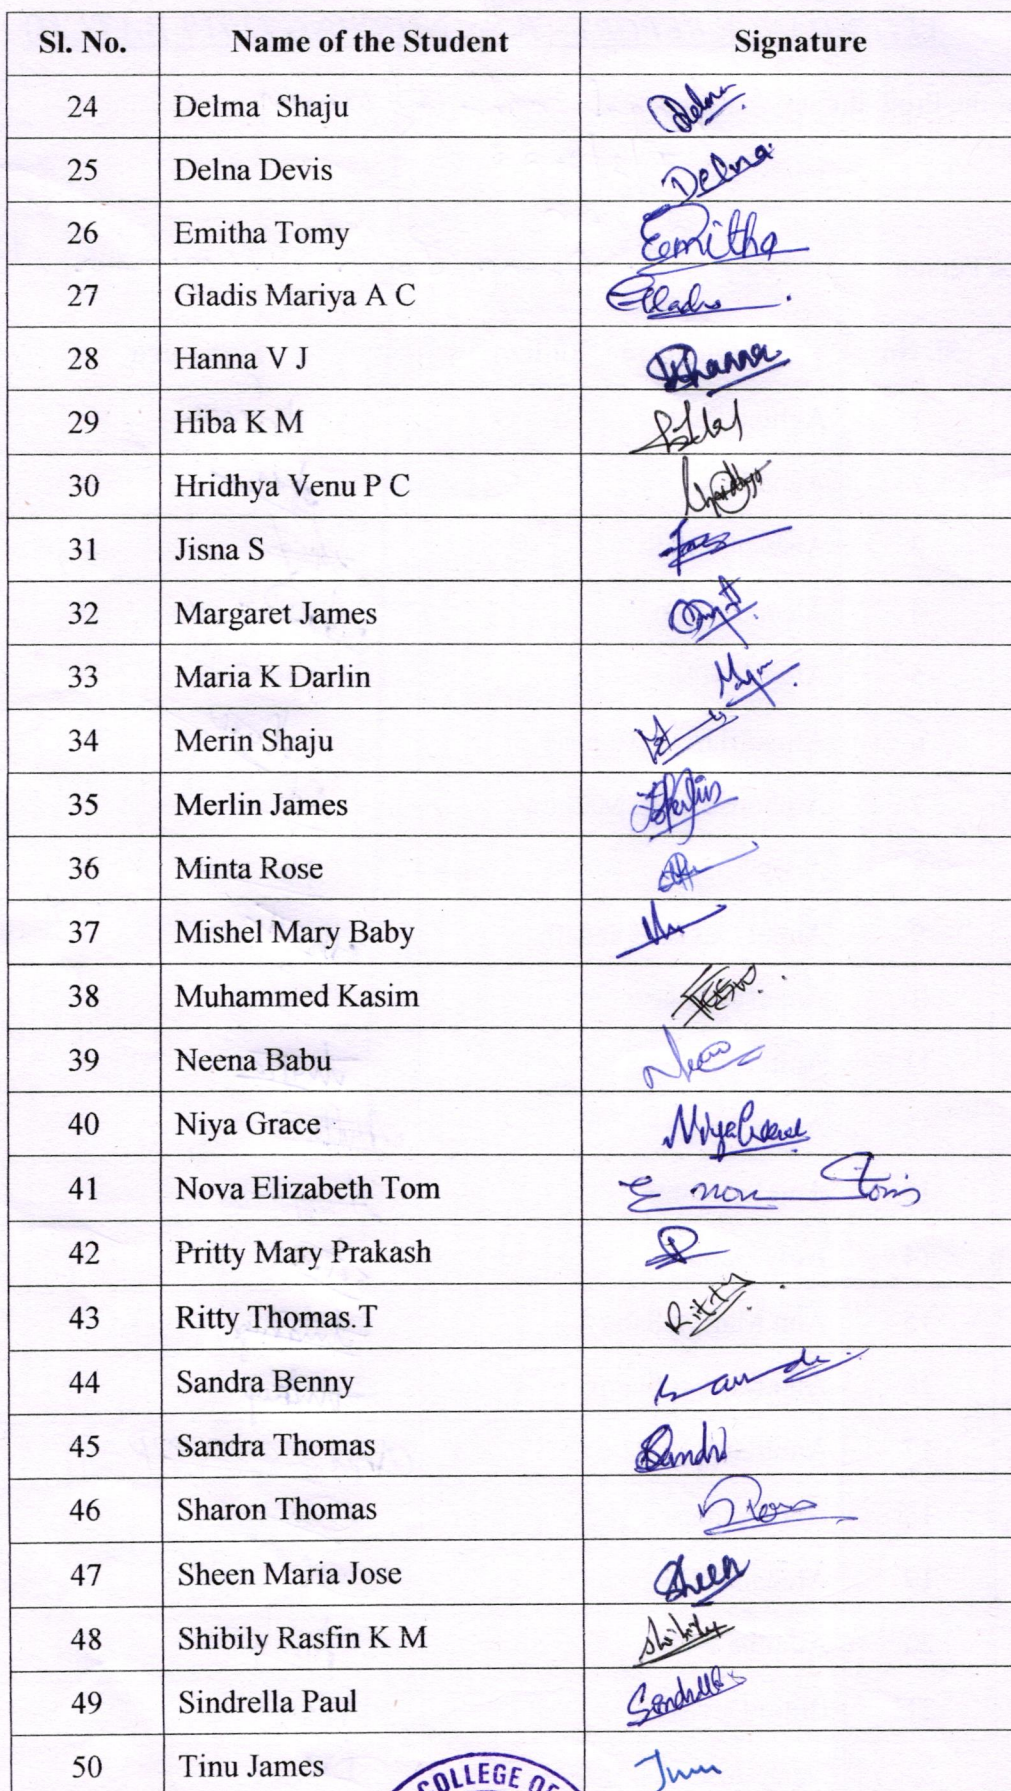 Sl. No. Name of the Student Signature
24 Delma Shaju Delma
25 Delna Devis Delna
26 Emitha Tomy Emitha
27 Gladis Mariya A C Gladis
28 Hanna V J Hanna
29 Hiba K M
30 Hridhya Venu P C Hridhya
31 Jisna S
32 Margaret James
33 Maria K Darlin
34 Merin Shaju
35 Merlin James
36 Minta Rose
37 Mishel Mary Baby
38 Muhammed Kasim
39 Neena Babu
40 Niya Grace Niya Grace
41 Nova Elizabeth Tom
42 Pritty Mary Prakash
43 Ritty Thomas.T Ritty
44 Sandra Benny
45 Sandra Thomas
46 Sharon Thomas
47 Sheen Maria Jose Sheen
48 Shibily Rasfin K M Shibily
49 Sindrella Paul Sindrella
50 Tinu James Tinu
COLLEGE OF